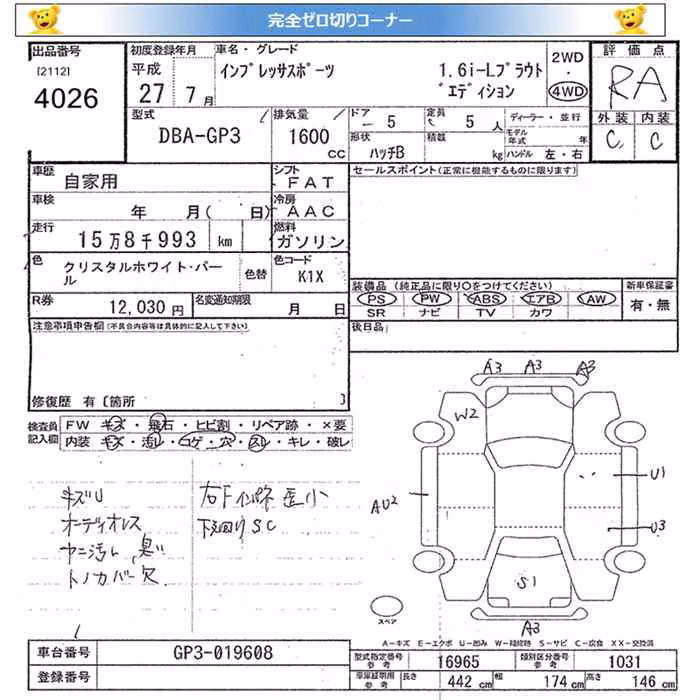 完全ゼロ切りコーナー
出品番号
[2112]
4026
初度登録年月
平成
27 7月
車名・グレード
インプレッサスポーツ 1.6i-Lプラウト
エディション
2WD
・
4WD
評価点
RA
外装 内装
C C
型式
DBA-GP3
排気量
1600
CC
ドア
5
定員
5人
形状
ハッチB
積載
kg
ディーラー・並行
モデル年式 年
ハンドル 左・右
車歴
自家用
シフト
FAT
車検
年 月( 日)
冷房
AAC
走行
15万8千993 km
燃料
ガソリン
色
クリスタルホワイト・パール
色替
色コード
K1X
R券
12,030円
名変通知期限
月 日
セールスポイント(正常に機能するものに限ります)
装備品(純正品に限り○をつけてください)
PS PW ABS エアB AW
SR ナビ TV カワ
新車保証書
有・無
後日品
注意事項申告欄(不具合内容等は具体的に記入して下さい)
修復歴 有〔箇所 〕
検査員
記入欄
FW キズ・飛石・ヒビ割・リペア跡・×要
内装 キズ・汚レ・コゲ・穴・スレ・キレ・破レ
キズU
オーディオレス
ヤニ汚レ 臭い
トノカバー欠
右Fインパネ歪小
下廻りSC
A3 A3 A3
W2
U1
AU2
U3
S1
A3
スペア
A-キズ E-エクボ U-凹み W-補修跡 S-サビ C-腐食 XX-交換済
車台番号
GP3-019608
登録番号
型式指定番号
参考
16965
類別区分番号
参考
1031
車庫証明用
参考
長さ 442cm 幅 174cm 高さ 146cm